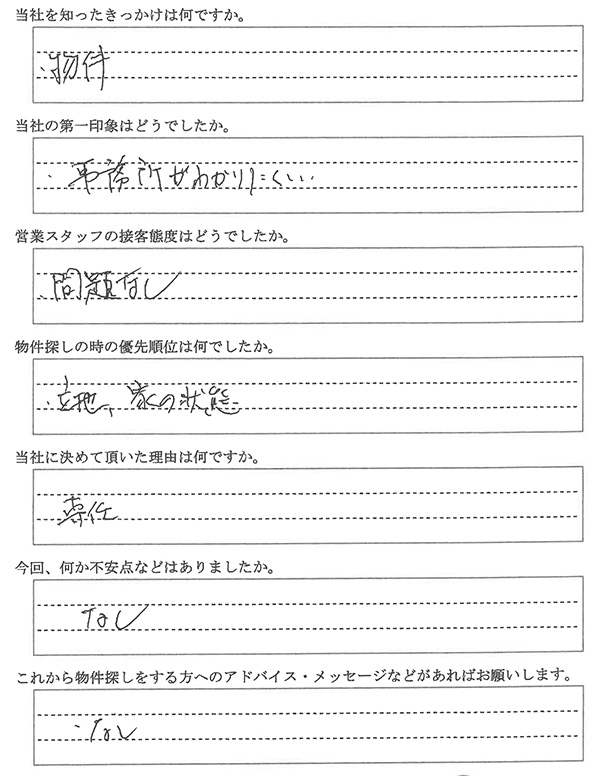 当社を知ったきっかけは何ですか。
・物件
当社の第一印象はどうでしたか。
・事務所がわかりにくい…
営業スタッフの接客態度はどうでしたか。
・問題なし
物件探しの時の優先順位は何でしたか。
・立地、家の状態
当社に決めて頂いた理由は何ですか。
専任
今回、何か不安点などはありましたか。
なし
これから物件探しをする方へのアドバイス・メッセージなどがあればお願いします。
・なし